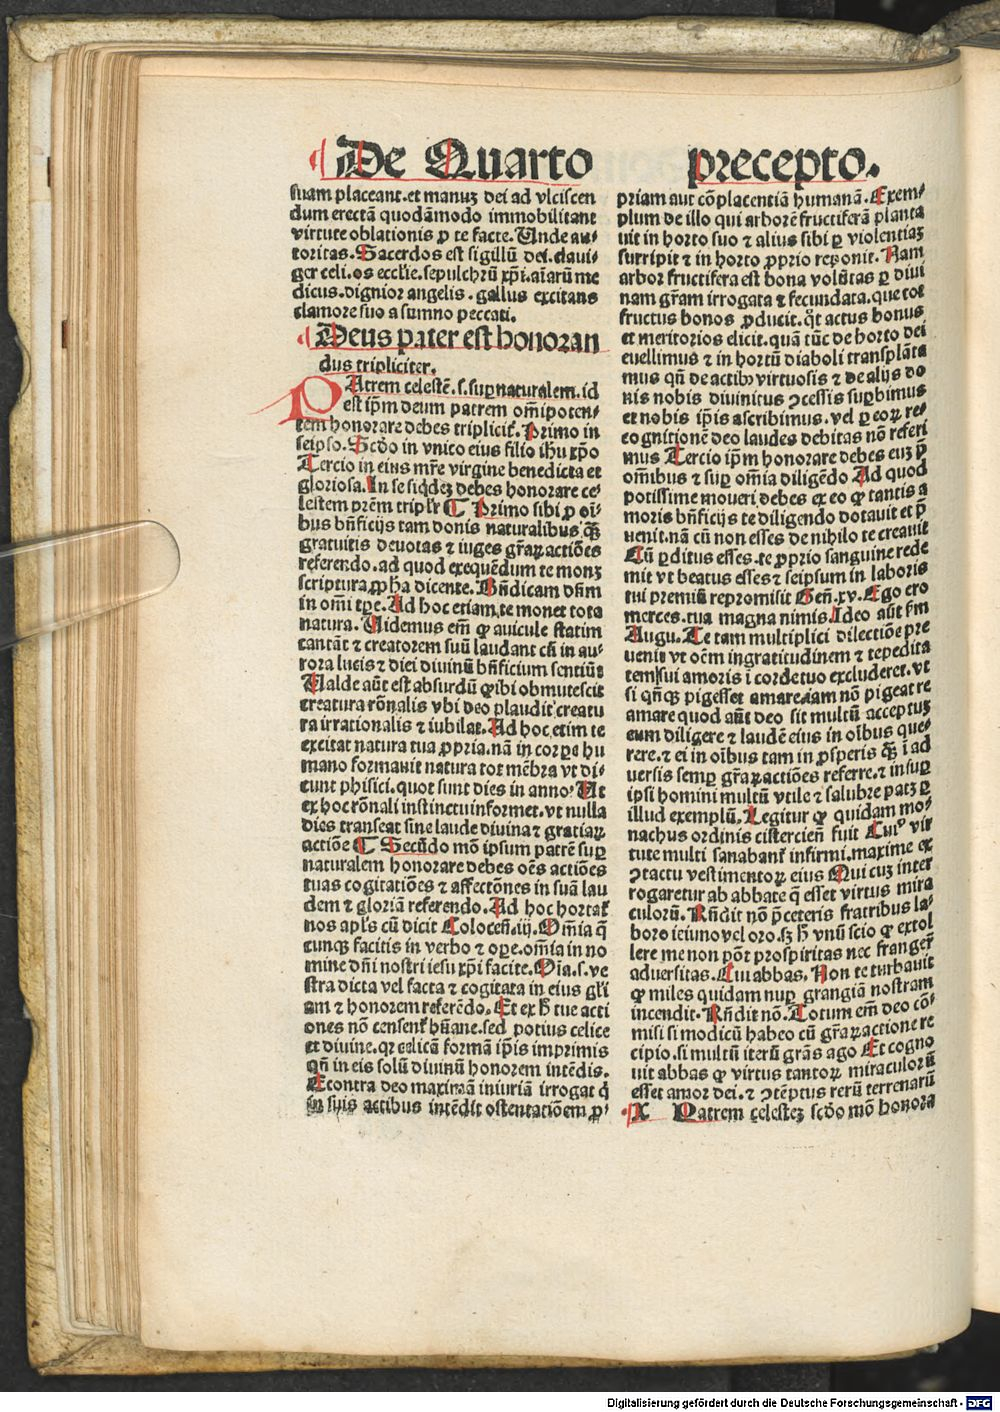 De Quarto precepto.
suam placeant. et manuȝ dei ad vlciscen
dum erectā quodāmodo immobilitant
virtute oblationis ꝓ te facte. Unde au⸗
toritas. Sacerdos est sigillū dei. claui⸗
ger celi. os eccl'ie. sepulchrū xp̄i. aīarū me
dicus. dignior angelis. gallus excitans
clamore suo a sumno peccati.
Deus pater est honoran
dus tripliciter.
PAtrem celestē. s. suꝑnaturalem. id
est ip̄m deum patrem om̄ipoten⸗
tem honorare debes triplicit̄. Primo in
seipso. Scd̄o in vnico eius filio ih̄u xp̄o
Tercio in eius mr̄e virgine benedicta et
gloriosa. In se siqdeȝ debes honorare ce⸗
lestem prēm tripl'r ¶ Primo sibi ꝓ oī⸗
bus bn̄ficijs tam donis naturalibus qȝ̄
gratuitis deuotas ⁊ iuges gr̄aꝝ actiōes
referendo. ad quod exequēdum te monȝ
scriptura ꝓph̄a dicente. Bn̄dicam dn̄m
in om̄i tp̄e. Ad hoc etiam te monet tota
natura. Uidemus em̄ ꝙ auicule statim
cantāt ⁊ creatorem suū laudant cū in au⸗
rora lucis ⁊ diei diuinū bn̄ficium sentiūt
Ualde aūt est absurdū ꝙ ibi obmutescit
creatura rōnalis vbi deo plaudit creatu
ra irrationalis ⁊ iubilat. Ad hoc etim te
excitat natura tua ꝓpria. nā in corpe hu
mano formauit natura tot mēbra vt di⸗
cunt phisici. quot sunt dies in anno. Ut
ex hoc rōnali instinctu informet. vt nulla
dies transeat sine laude diuina ⁊ gratiaꝝ
actiōe ¶ Secūdo mō ipsum patrē suꝑ
naturalem honorare debes oēs actiōes
tuas cogitatiōes ⁊ affectōnes in suā lau
dem ⁊ gloriā referendo. Ad hoc hortat̄
nos apl's cū dicit Colocen̄. iij. Om̄ia q̄
cunqȝ facitis in verbo ⁊ ope. om̄ia in no
mine dn̄i nostri iesu xp̄i facite. Oīa. s. ve
stra dicta vel facta ⁊ cogitata in eius gl'i
am ⁊ honorem referēdo. Et ex h̄ tue acti
ones nō censent̄ hūane. sed potius celice
et diuine. qr celicā formā ip̄is imprimis
qn̄ in eis solū diuinū honorem intēdis.
Econtra deo maximā iniuriā irrogat q̇
in suis actibus intēdit ostentatiōem ꝓ⸗
priam aut cōplacentiā humanā. Exem⸗
plum de illo qui arborē fructiferā planta
uit in horto suo ⁊ alius sibi ꝑ violentiaȝ
surripit ⁊ in horto ꝓprio reponit. Nam
arbor fructifera est bona volūtas ꝑ diui
nam gr̄am irrogata ⁊ fecundata. que tot
fructus bonos ꝓducit. qt̄ actus bonus
et meritorios elicit. quā tūc de horto dei
euellimus ⁊ in hortū diaboli transplāta
mus qn̄ de actibȝ virtuosis ⁊ de alijs do
nis nobis diuinitus ꝯcessis suꝑbimus
et nobis ip̄is ascribimus. vel ꝑ eoꝝ re⸗
cognitionē deo laudes debitas nō referi
mus Tercio ip̄m honorare debes euȝ p̄
om̄ibus ⁊ suꝑ om̄ia diligēdo Ad quod
potissime moueri debes ex eo ꝙ tantis a
moris bn̄ficijs te diligendo dotauit et p̄
uenit. nā cū non esses de nihilo te creauit
Cū ꝑditus esses. te ꝓprio sanguine rede
mit vt beatus esses ⁊ seipsum in laboris
tui premiū repromisit Gen̄. xv. Ego ero
merces. tua magna nimis. Ideo aūt fm̄
Augu. Te tam multiplici dilectiōe pre
uenit vt oēm ingratitudinem ⁊ tepedita
tem sui amoris ī corde tuo excluderet. vt
si qn̄qȝ pigesset amare. iam nō pigeat re
amare quod aūt deo sit multū acceptuȝ
eum diligere ⁊ laudē eius in oībus que⸗
rere. ⁊ ei in oībus tam in ꝓsperis qȝ̄ ī ad
uersis semꝑ gr̄aꝝ actiōes referre. ⁊ insuꝑ
ipsi homini multū vtile ⁊ salubre patȝ ꝑ
illud exemplū. Legitur ꝙ quidam mo⸗
nachus ordinis cistercien̄ fuit Cui⁹ vir
tute multi sanabant̄ infirmi. maxime ex
ꝯtactu vestimentoꝝ eius Qui cuȝ inter
rogaretur ab abbate q̄ esset virtus mira
culorū. Rn̄dit nō p̄ ceteris fratribus la⸗
boro ieiuno vel oro. sȝ h̄ vnū scio ꝙ extol
lere me non pōt prosperitas nec franger̄
aduersitas. Cui abbas. Non te turbauit
ꝙ miles quidam nuꝑ grangiā nostram
incendit. Rn̄dit nō. Totum em̄ deo cō⸗
misi si modicū habeo cū gr̄aꝝ actione re
cipio. si multū iterū grās ago Et cogno
uit abbas ꝙ virtus tantoꝝ miraculorū
esset amor dei. ⁊ ꝯtēptus rerū terrenarū
X Patrem celesteȝ scd̄o mō honora
Digitalisierung gefördert durch die Deutsche Forschungsgemeinschaft - DFG